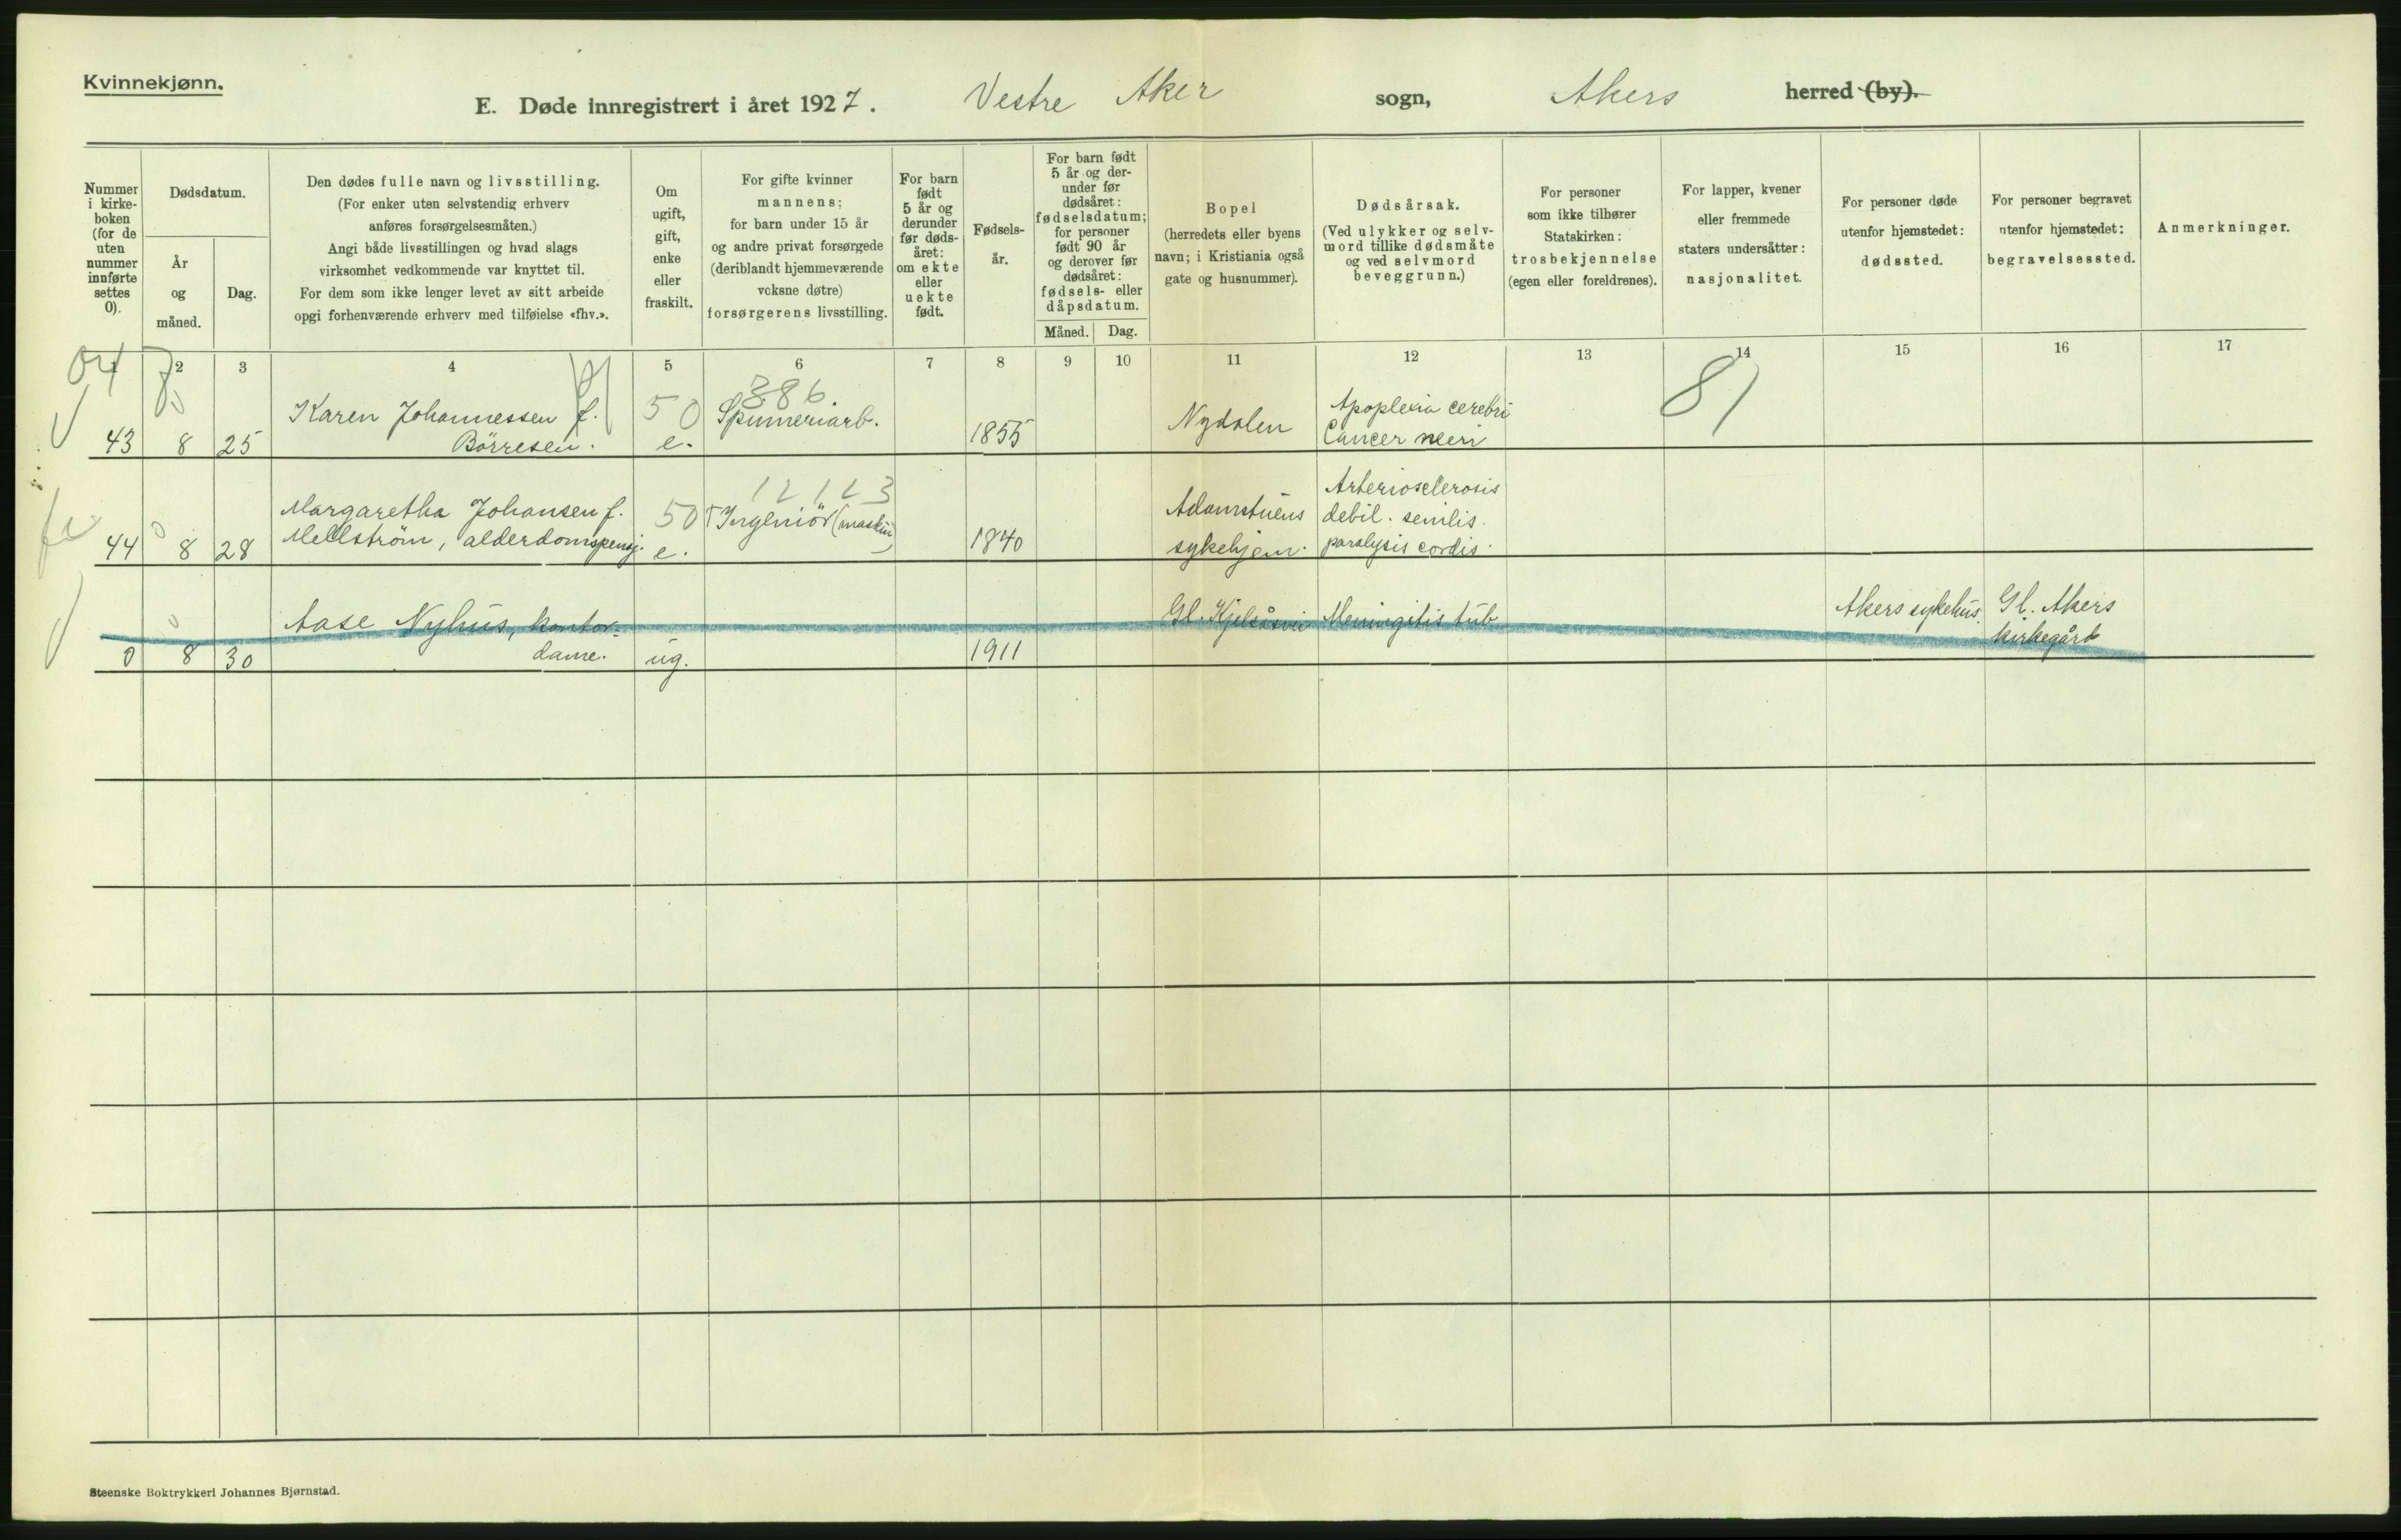 Kvinnekjønn.
E. Døde innregistrert i året 1927. Vestre Aker sogn, Akers herred (by).
Nummer
i kirke-
boken
(for de
uten
nummer
innførte
settes
0).
Dødsdatum.
År
og
måned.
Dag.
Den dødes fulle navn og livsstilling.
(For enker uten selvstendig erhverv
anføres forsørgelsesmåten.)
Angi både livsstillingen og hvad slags
virksomhet vedkommende var knyttet til.
For dem som ikke lenger levet av sitt arbeide
opgi forhenværende erhverv med tilføielse «fhv.».
Om
ugift,
gift,
enke
eller
fraskilt.
For gifte kvinner
mannens;
for barn under 15 år
og andre privat forsørgede
(deriblandt hjemmeværende
voksne døtre)
forsørgerens livsstilling.
For barn
født
5 år og
derunder
før døds-
året:
om ekte
eller
uekte
født.
Fødsels-
år.
For barn født
5 år og der-
under før
dødsåret:
fødselsdatum;
for personer
født 90 år
og derover før
dødsåret:
fødsels- eller
dåpsdatum.
Måned. Dag.
Bopel
(herredets eller byens
navn; i Kristiania også
gate og husnummer).
Dødsårsak.
(Ved ulykker og selv-
mord tillike dødsmåte
og ved selvmord
beveggrunn.)
For personer
som ikke tilhører
Statskirken:
trosbekjennelse
(egen eller foreldrenes).
For lapper, kvener
eller fremmede
staters undersåtter:
nasjonalitet.
For personer døde
utenfor hjemstedet:
dødssted.
For personer begravet
utenfor hjemstedet:
begravelsessted.
Anmerkninger.
1 2 3 4 5 6 7 8 9 10 11 12 13 14 15 16 17
04 81
386
50
Karen Johannessen f. Spinneriarb. Nydalen Apoplexia cerebri
43 8 25 Börresen. e. 1855 Cancer uteri
12123
50
Margaretha Johansen f. Ingeniör (maskin) Adamstuens Arteriosclerosis
debil. senilis.
44 8 28 Mellström, alderdomspensj. e. 1840 sykehjem. paralysis cordis.
Aase Nyhus, kontor- Gl. Kjelsåsvei Meningitis tub. Akers sykehus. Gl. Akers
0 8 30 dame. ug. 1911 kirkegård
Steenske Boktrykkeri Johannes Bjørnstad.